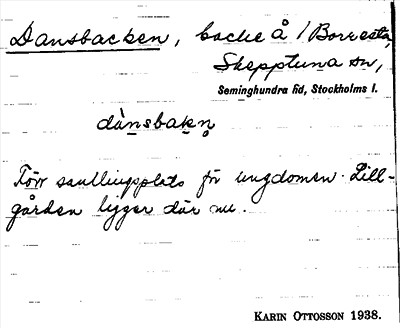 Dansbacken, backe å /Borresta,
Skepptuna sn,
Seminghundra hd, Stockholms l.
dànsbakn̥
Förr samlingsplats för ungdomen. Lill-
gården ligger där nu.
KARIN OTTOSSON 1938.